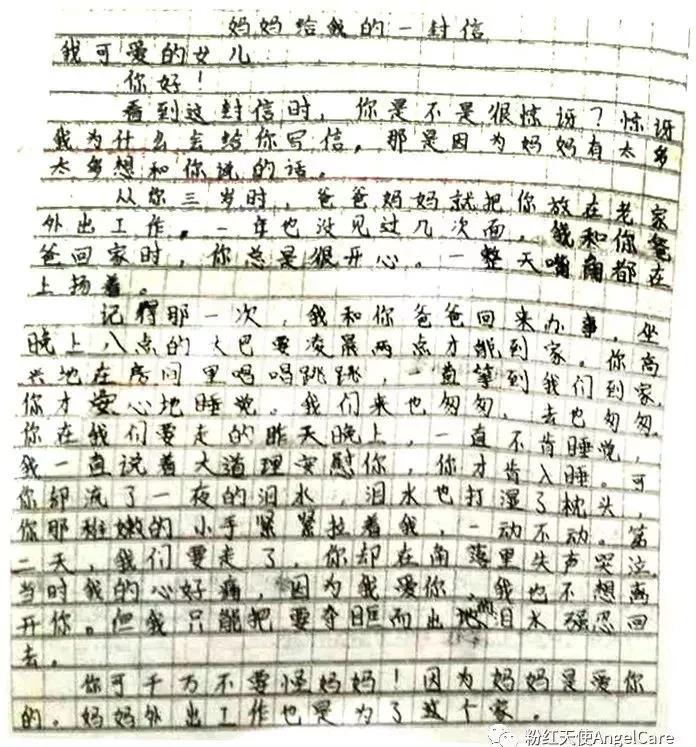 妈妈给我的一封信
我可爱的女儿
你好！
看到这封信时，你是不是很惊讶？惊讶
我为什么会给你写信。那是因为妈妈有太多
太多想和你说的话。
从你三岁时，爸爸妈妈就把你放在老家
外出工作。一年也没见过几次面，我和你爸
爸回家时，你总是很开心。一整天嘴角都在
上扬着。
记得那一次，我和你爸爸回来办事，坐
晚上八点的大巴要凌晨两点才能到家。你高
兴地在房间里唱唱跳跳，一直等到我们到家，
你才安心地睡觉。我们来也匆匆，去也匆匆，
你在我们要走的昨天晚上，一直不肯睡觉，
我一直说着大道理安慰你，你才肯入睡。可
你却流了一夜的泪水，泪水也打湿了枕头，
你那稚嫩的小手紧紧拉着我，一动不动。第
二天，我们要走了，你却在角落里失声哭泣，
当时我的心好痛，因为我爱你，我也不想离
开你。但我只能把要夺眶而出的泪水强忍回
去。
你可千万不要怪妈妈！因为妈妈是爱你
的。妈妈外出工作也是为了这个家。
粉红天使AngelCare